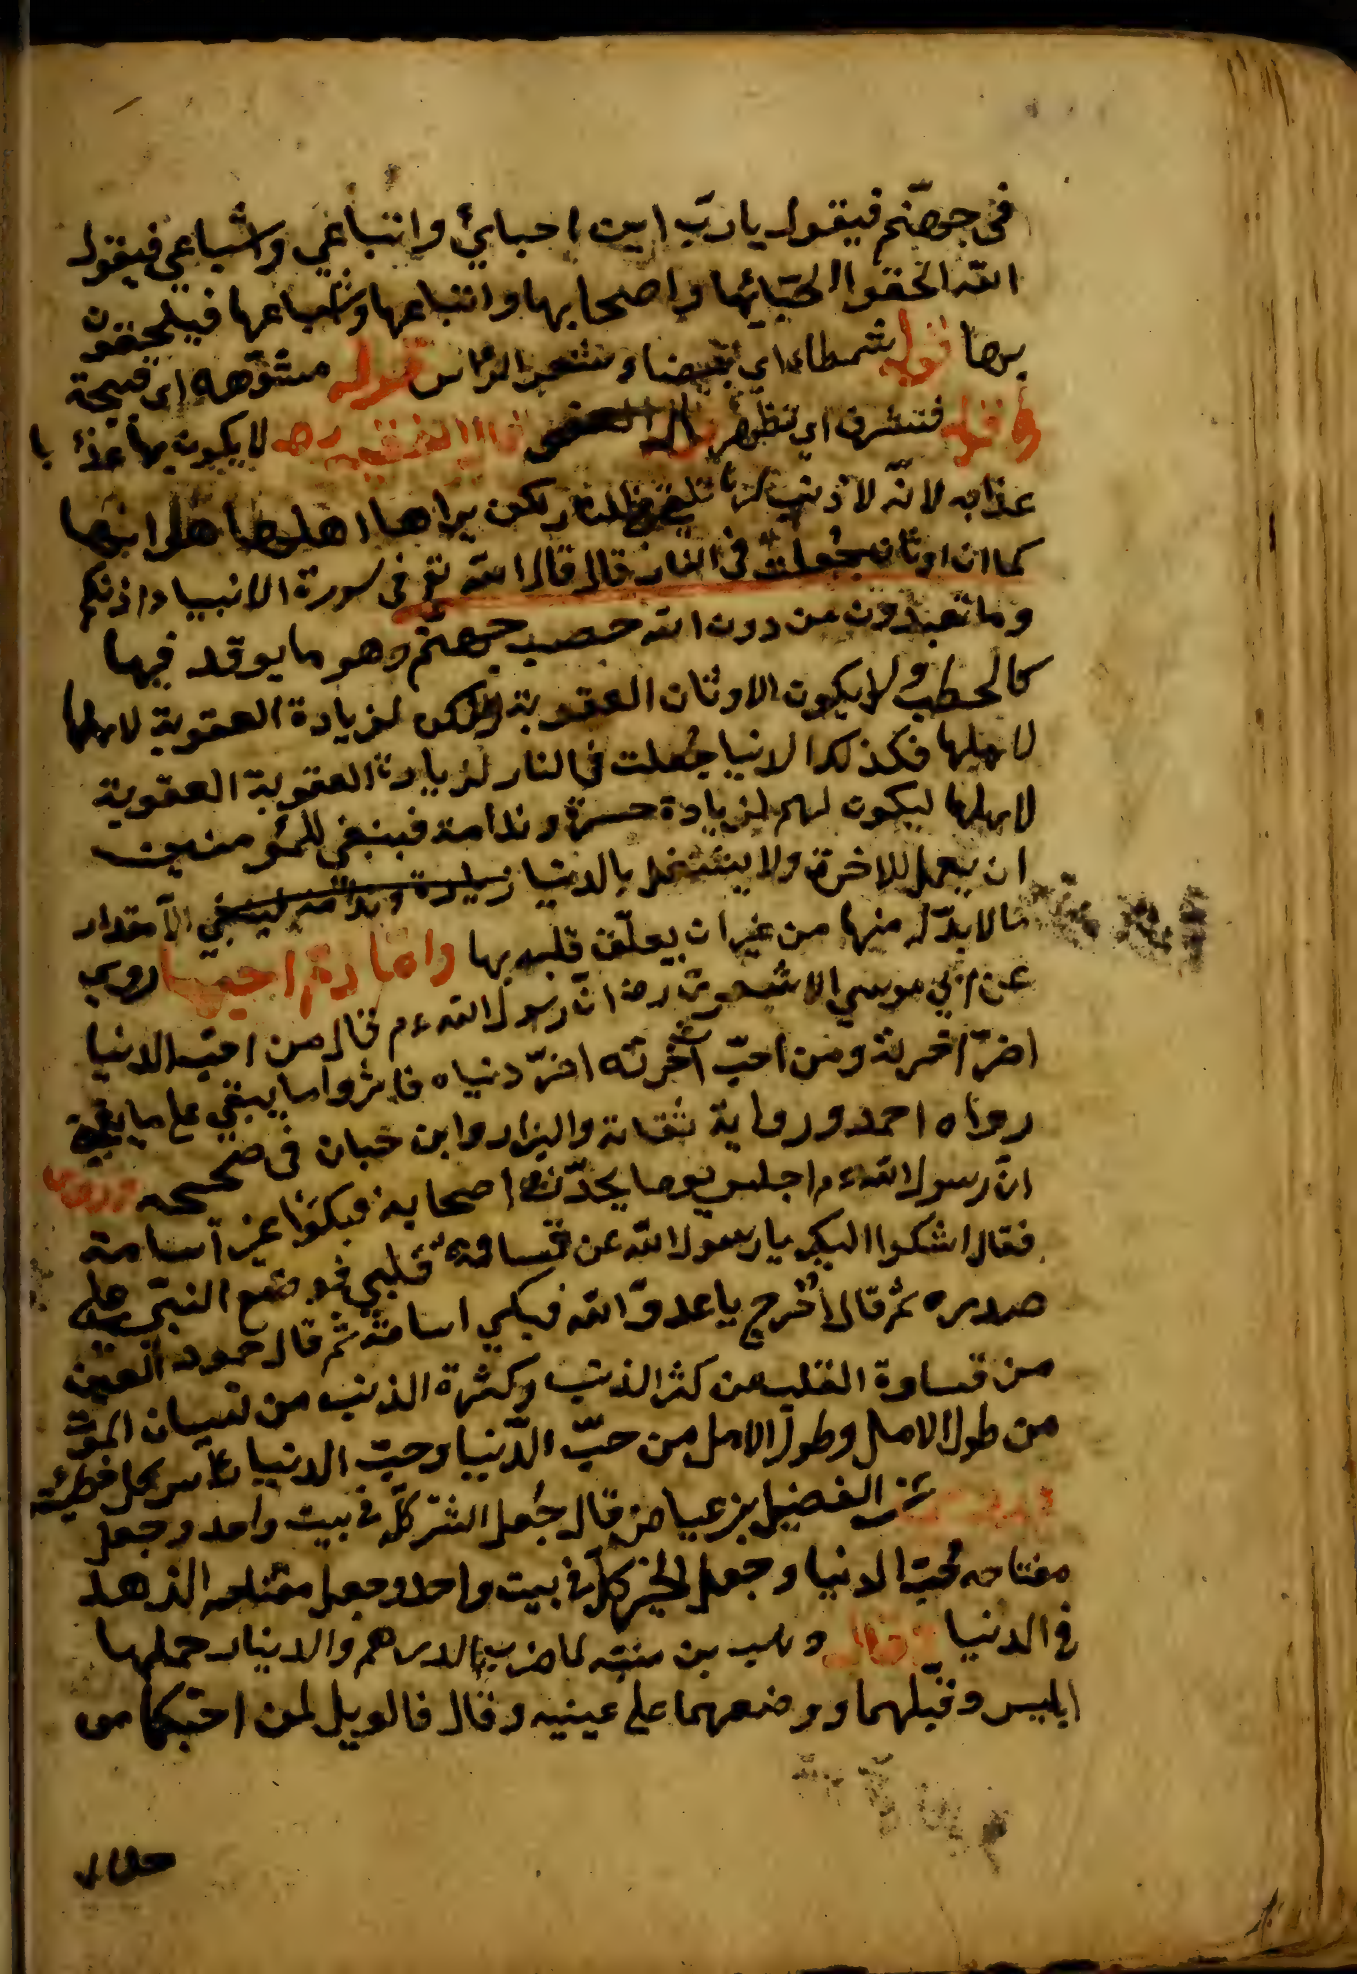 في جهنّم فيقول يا ربّ اين احبائي واتباعي واشباعي فيقول
الله الحقوا احبّائها واصحابها واتباعها واشباعها فيلحقون
بها قوله شمطاء اي بيضا وشعر الراس قوله مشوّهه اي قبيحة
وقوله فتشرف اي تظهر قال الفقيه ره لا يكون بها عذا با
عذابه لانه لا ذنب لها ولكن يراها اهلها هل ابنها
كما ان اوثان جعلت في النار قال قال الله تع في سورة الانبياء انكم
وما تعبدون من دون الله حصب جهنّم وهو ما يوقد فيها
كالحطب ولا يكون الاوثان العقوبة ولكن لزيادة العقوبة لاهلها
لاهلها فكذلك الدنيا جُعلت في النار لزيادة العقوبة العقوبة
لاهلها ليكون لهم لزيادة حسرة وندامة فينبغي للمؤمنين
ان يعمل للاخرة ولا يشتغل بالدنيا زيادة وندامة لينبغي الّا مقدار
ما لا بدّ له منها من غير ان يعلّق قلبه بها روي
عن ابي موسي الاشعري رض انّ رسول الله ءم قال من احبّ الدنيا
اضرّ اخرته ومن احبّ آخرته اضرّ دنياه فاثروا ما يبقي علي ما يفني
رواه احمد ورواية ثقاتة والبزار وابن حبان في صحيحه وروي
انّ رسول الله ءم اجلس يوما يحدّث اصحابه فبكوا عن اسامة
فقال اشكوا اليك يا رسول الله عن قساوة قلبي فوضع النبيّ علي
صدره ثم قال اُخرج يا عدوّ الله فبكي اسامة ثم قال جمود العين
من قساوة القلب من كثر الذنب وكثرة الذنب من نسيان الموت
من طول الامل وطول الامل من حبّ الدّنيا وحبّ الدنيا راس كل خطيئة
عن الفضيل بن عياض قال جُعل الشرّ كلّه في بيت واحد وجعل
مفتاحه حُبّ الدنيا وجعل الخير كلّه في بيت واحد وجعل مفتاحه الزهد
في الدنيا وقال وهب بن منبّه لما ضرب الدرهم والدينار حملها
ابليس وقبّلهما ووضعهما علي عينيه وقال فالويل لمن احبّكما من